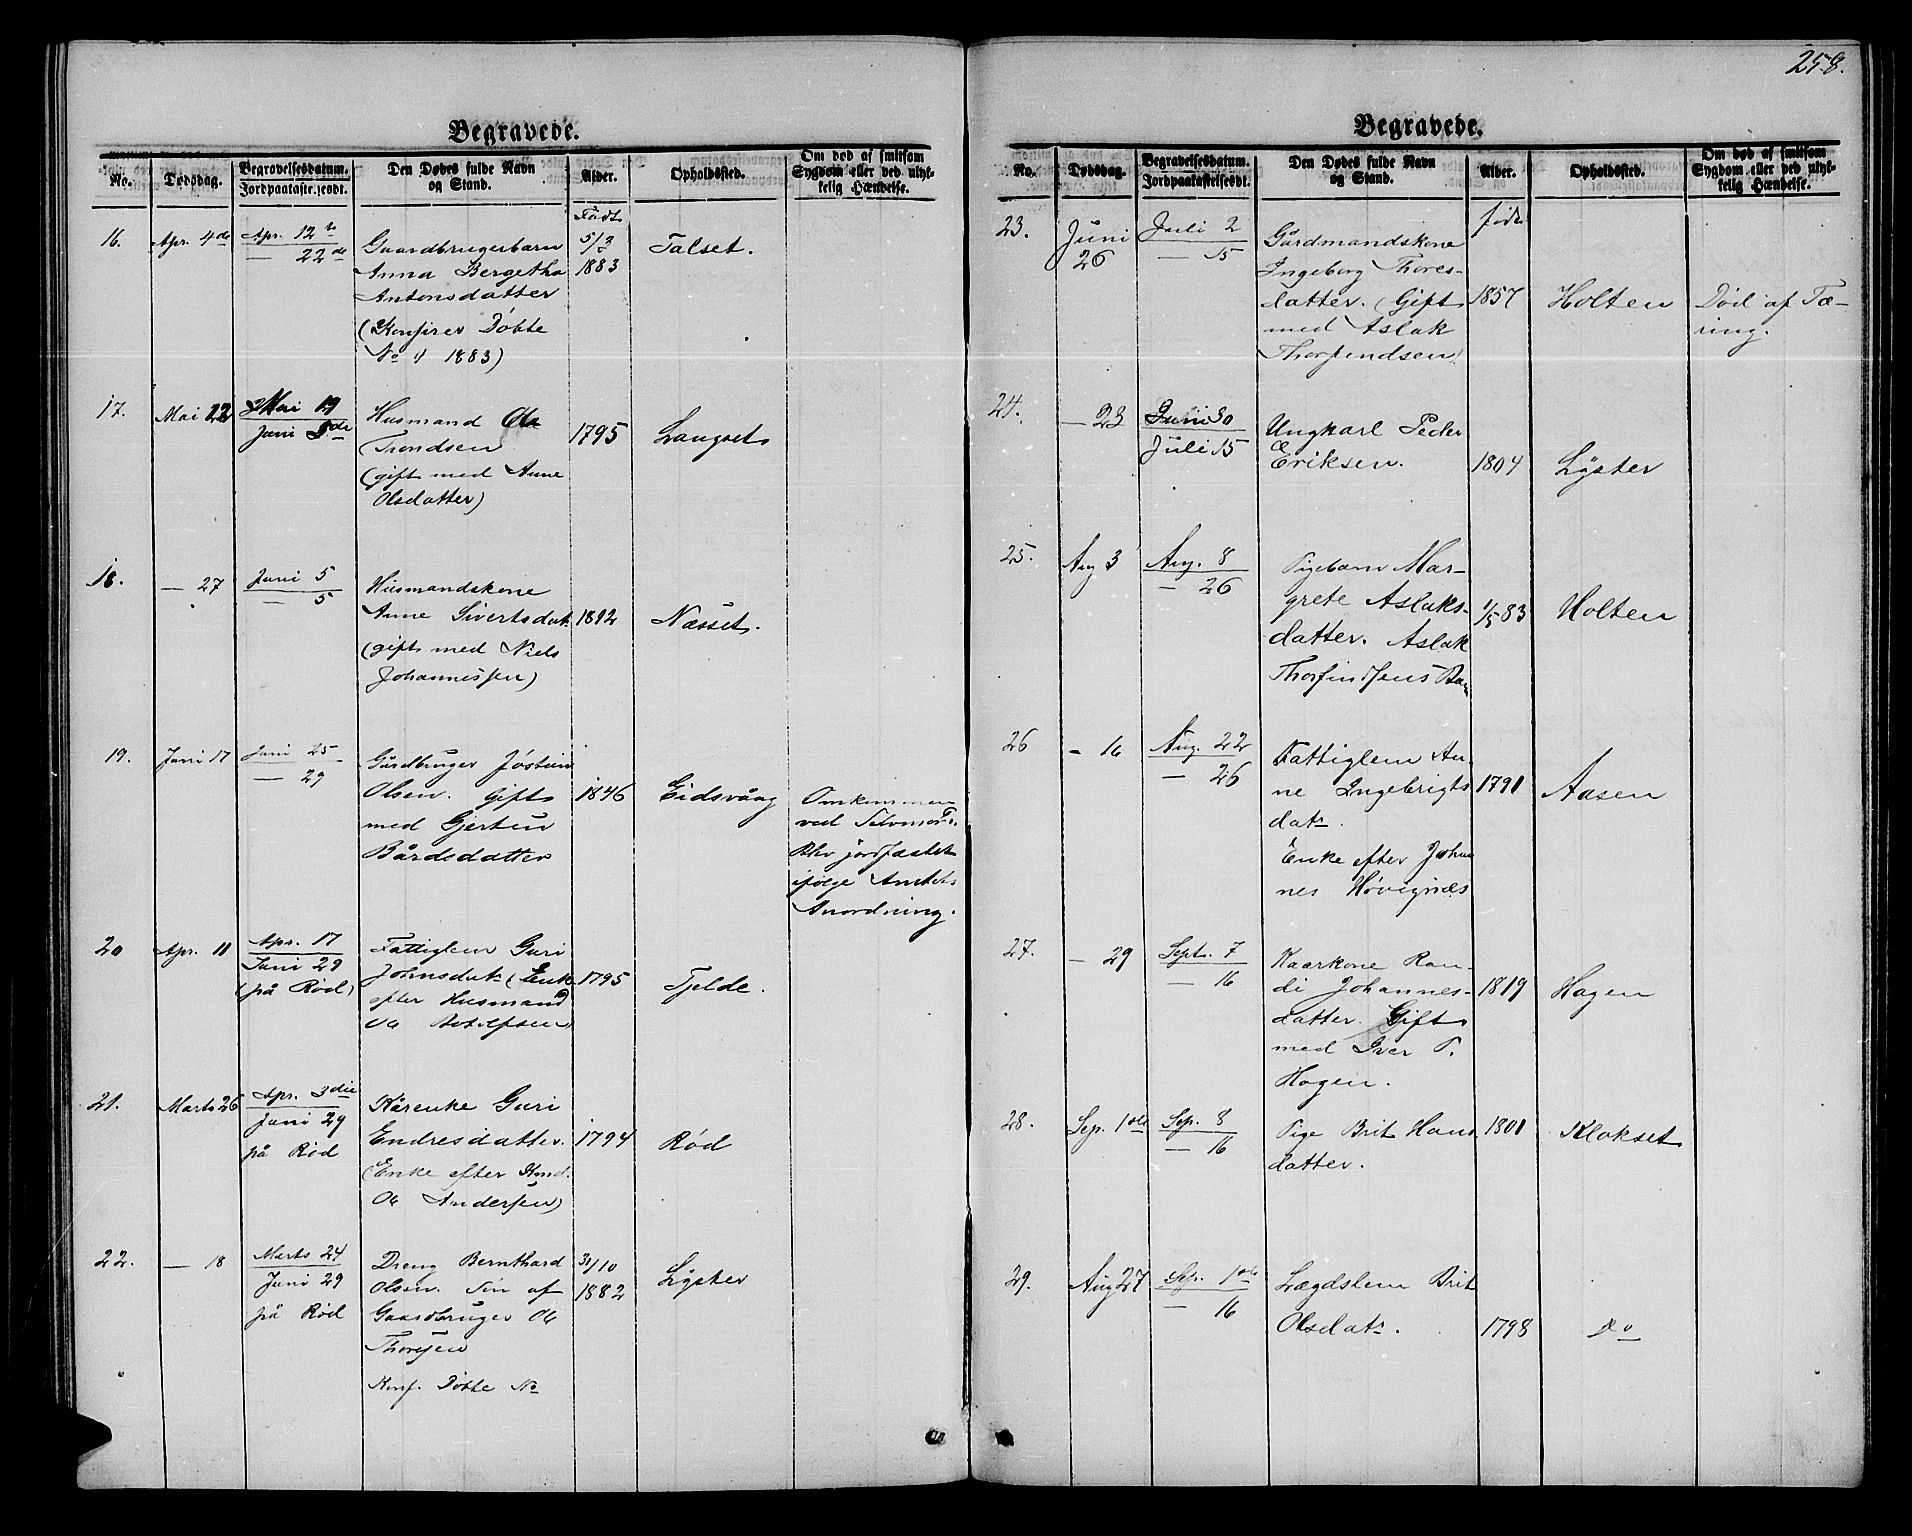 258.
Begravede.
No.
Dødsdag.
Begravelsesdatum.
Jordpaakastelsesdt.
Den Dødes fulde Navn
og Stand.
Alder.
Opholdssted.
Om død af smitsom
Sygdom eller ved ulyk-
kelig Hændelse.
Født
16.
Apr. 4de
Apr. 12te
— 22de
Gaardbrugerbarn
Anna Bergetha
Antonsdatter
(Konfirer Døbte
No 4 1883)
5/3
1883
Talset.
17.
Mai 22
Mai 19
Juni 5de
Husmand Ola
Trondsen
(gift med Anne
Olsdatter)
1795
Langset
18.
— 27
Juni 5
— 5
Husmandskone
Anne Sivertsdat.
(gift med Niels
Johannessen)
1812
Næsset.
19.
Juni 17
Juni 25
— 29
Gårdbruger Jøstein
Olsen. Gift
med Gjertru
Bårdsdatter
1846
Eidsvåag
Omkommen
ved Selvmord.
Blev jordfæstet
ifølge Amtets
Anordning.
20
Apr. 11
Apr. 17
Juni 29
(på Rød)
Fattiglem Guri
Johnsdat. (Enke
efter Husmand
Ola
1795
Tjelde.
21.
Marts 26
Apr. 3die
Juni 29
på Rød
Kårenke Guri
Endresdatter.
(Enke efter
Ola Andersen)
1794
Rød
22.
— 18
Marts 24
Juni 29
på Rød
Dreng Bernthard
Olsen. Søn af
Gaardbruger Ola
Thoresen
Konf. Døbte No
31/10
1882
Lyster
Begravede.
No.
Dødsdag.
Begravelsesdatum.
Jordpaakastelsesdt.
Den Dødes fulde Navn
og Stand.
Alder.
Opholdssted.
Om død af smitsom
Sygdom eller ved ulyk-
kelig Hændelse.
født
23.
Juni
26
Juli 2
— 15
Gårdmandskone
Ingeborg Thores-
datter. (Gift
med Aslak
Thorfindsen)
1857
Holten
Død af Tæ-
ring.
24.
— 23
Juni 30
Juli 15
Ungkarl Peder
Eriksen.
1804
Lyster
25.
Aug 3
Aug. 8
— 26
Pigebarn Mar-
grete Aslaks-
datter. Aslak
Thorfindsens Barn
1/5 83
Holten
26
- 16
Aug. 22
— 26
Fattiglem An-
ne Ingebrigts
datr.
Enke efter Johan
nes Høvignæs
1791
Aasen
27.
— 29
Sept. 7
— 16
Kaarkone Ran-
di Johannes-
datter. Gift
med Iver T.
Hagen.
1819
Hagen
28.
Sep. 1ste
Sep. 8
— 16
Pige Brit Hans
datter.
1801
Klokset
29.
Aug 27
Sep. 1ste
— 16
Lægdslem Brit
Olsdatr.
1798
Do